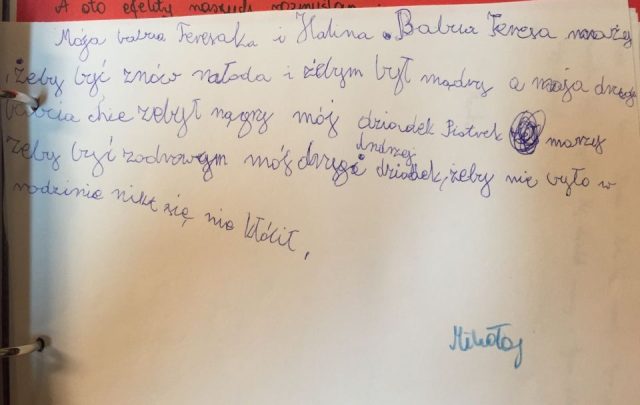 A oto efekty naszych rozmyślań
Moja babcia Teresaka i Halina. Babcia Teresa marzy
żeby być znów młoda i żebym był mądry a moja druga
babcia chce żebył mągry mój dziadek Piotrek marzy
żeby być zodrowym mój drugi Andrzej dziadek, żeby nie było w
rodzinie nikt się nie kłócił,
Mikołaj